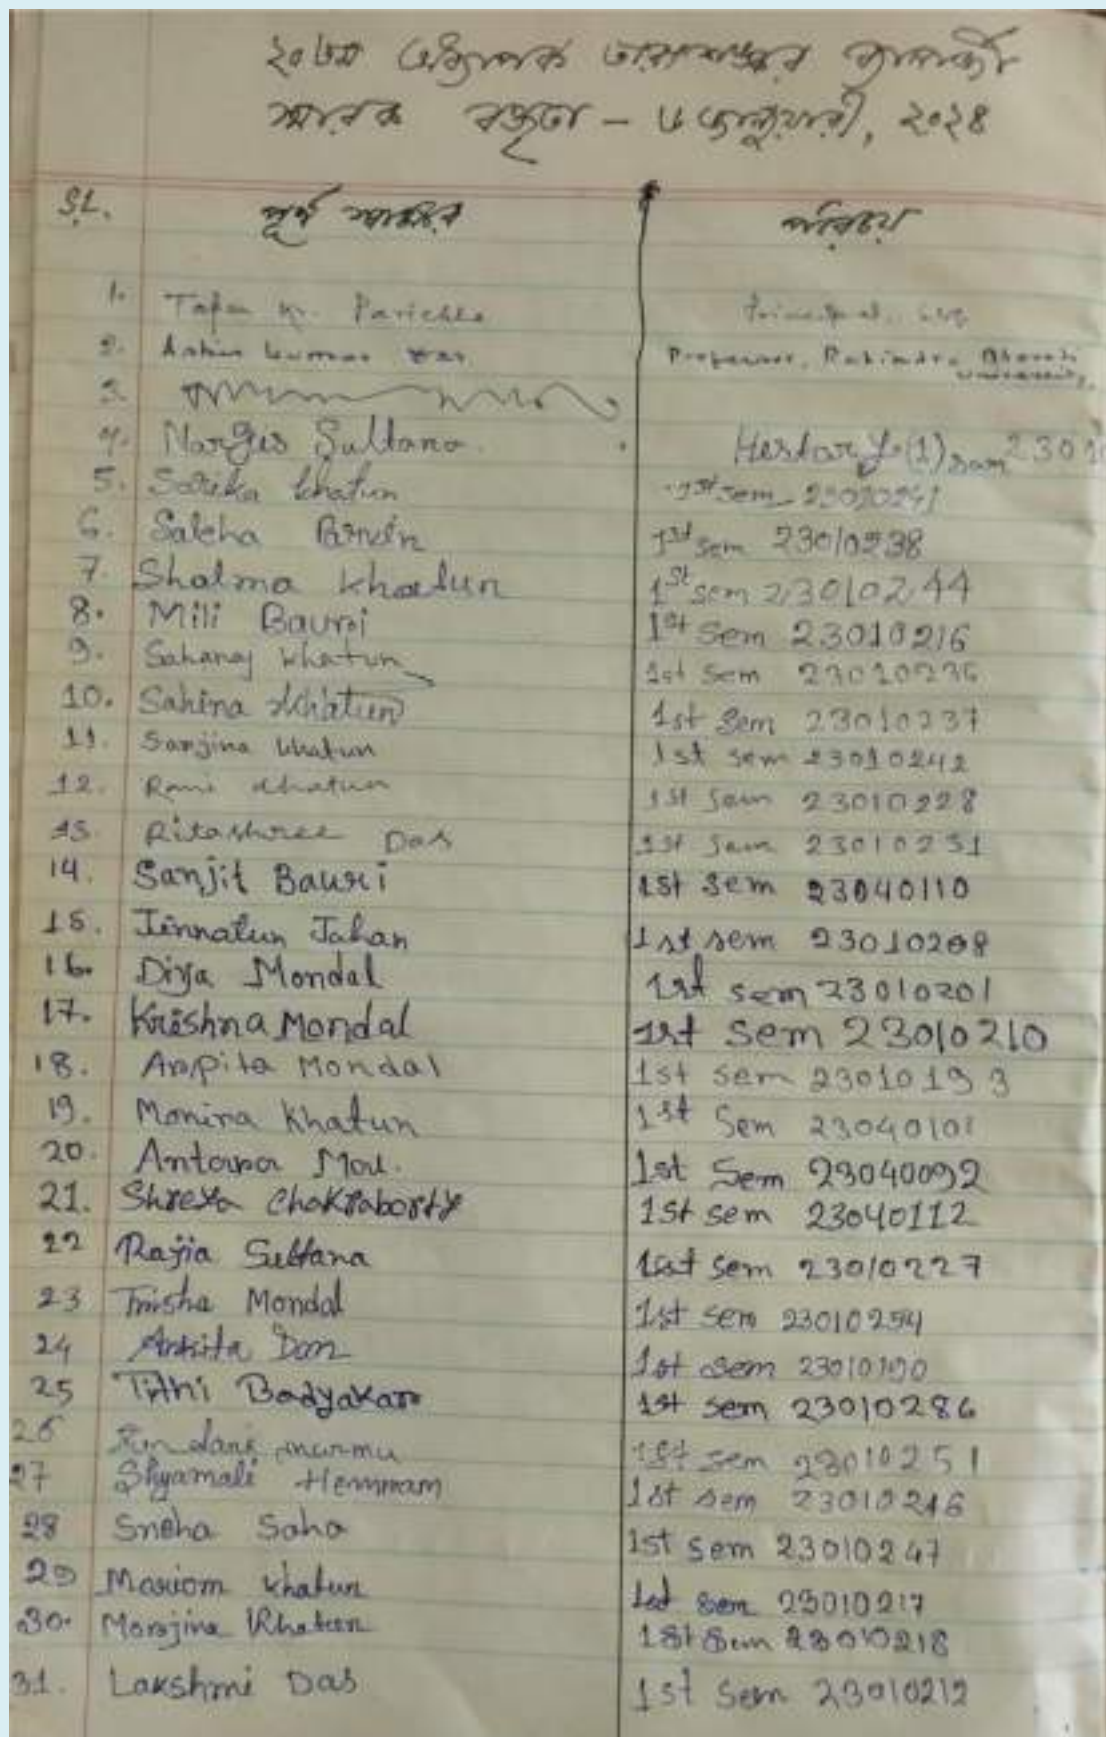 ২০তম অধ্যাপক তারাশঙ্কর ব্যানার্জী
স্মারক বক্তৃতা – ৬ জানুয়ারী, ২০২৪
SL. পূর্ণ স্বাক্ষর পরিচয়
1. Tapan Kr. Parichha Principal
2. kumar Professor, Rabindra Bharati University,
3.
4. Narges Sultana. Hestory (1) sam 2301
5. Sarika khatun 1st sem 23010241
6. Saleha Parvin 1st Sem 23010238
7. Shalma Khatun 1st sem 23010244
8. Mili Bauri 1st Sem 23010216
9. Sahanaj khatun 1st Sem 23010236
10. Sahina Khatun 1st Sem 23010237
11. Sanjina khatun 1st Sem 23010242
12. Rani Khatun 1st Sam 23010228
13. Ritashree Das 1st Sam 23010231
14. Sanjit Bauri 1st Sem 23040110
15. Jinnatun Jahan 1st sem 23010208
16. Diya Mondal 1st sem 23010201
17. Krishna Mondal 1st Sem 23010210
18. Arpita Mondal 1st sem 23010193
19. Monira Khatun 1st Sem 23040101
20. Antara 1st Sem 23040092
21. Shreya Chakraborty 1st sem 23040112
22 Rajia Sultana 1st Sem 23010227
23 Trisha Mondal 1st Sem 23010254
24 Ankita 1st sem 23010190
25 Tithi Badyakar 1st sem 23010286
26 murmu 1st sem 23010251
27 Shyamali Hemram 1st sem 23010246
28 Sneha Saha 1st Sem 23010247
29 Mariom khatun 1st sem 23010217
30. Marjina Khatun 1st Sem 23010218
31. Lakshmi Das 1st Sem 23010212